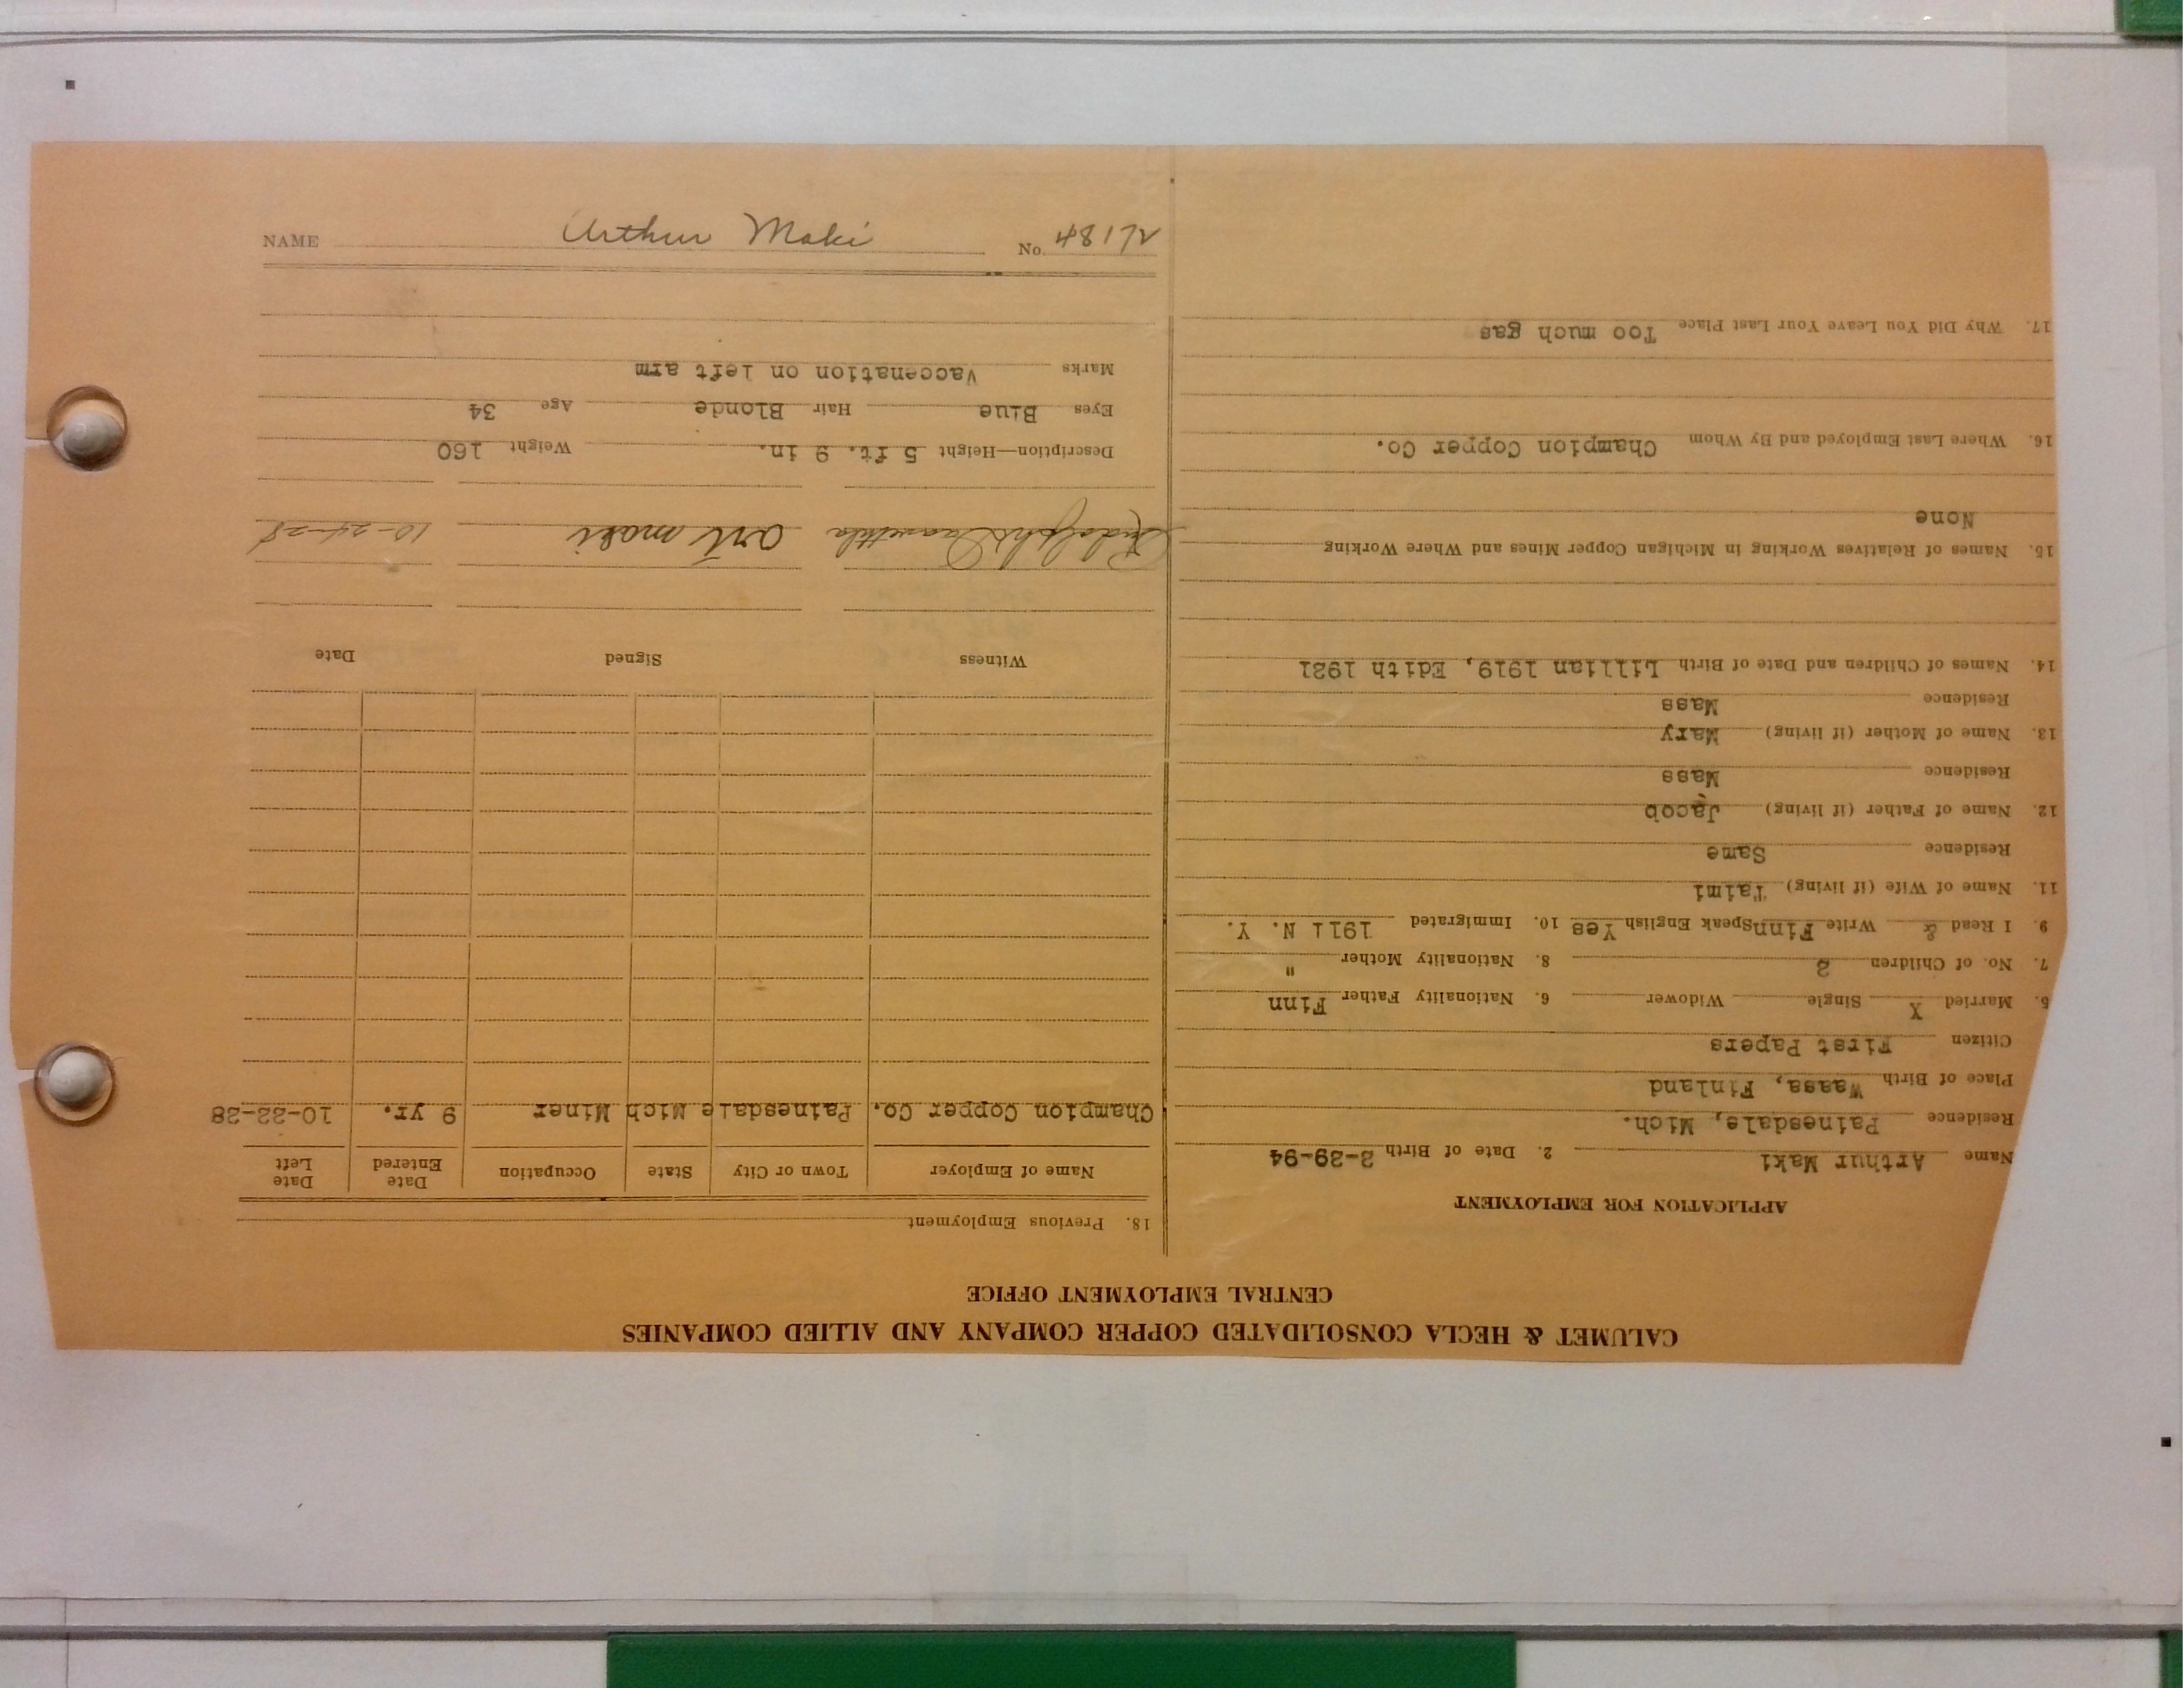 CALUMET & HECLA CONSOLIDATED COPPER COMPANY AND ALLIED COMPANIES
CENTRAL EMPLOYMENT OFFICE
APPLICATION FOR EMPLOYMENT
Name Arthur Maki 2. Date of Birth 2-29-94
Residence Painesdale, Mich.
Place of Birth Waasa, Finland
Citizen First Papers
5. Married X Single Widower 6. Nationality Father Finn
7. No. of Children 2 8. Nationality Mother "
9. I Read & Write Finn Speak English Yes 10. Immigrated 1911 N. Y.
11. Name of Wife (if living) Taimi
Residence Same
12. Name of Father (if living) Jacob
Residence Mass
13. Name of Mother (if living) Mary
Residence Mass
14. Names of Children and Date of Birth Lillian 1919, Edith 1921
15. Names of Relatives Working in Michigan Copper Mines and Where Working
None
16. Where Last Employed and By Whom Champion Copper Co.
17. Why Did You Leave Your Last Place Too much gas
18. Previous Employment
Name of Employer Town or City State Occupation Date Entered Date Left
Champion Copper Co. Painesdale Mich Miner 9 yr. 10-22-28
Witness Signed Date
Rudolph Art Maki 10-24-28
Description—Height 5 ft. 9 in. Weight 160
Eyes Blue Hair Blonde Age 34
Marks Vaccenation on left arm
NAME Arthur Maki No. 48172